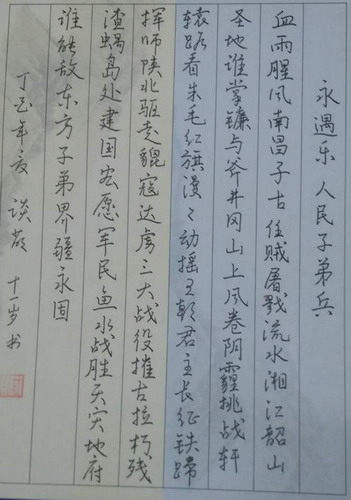 永遇乐 人民子弟兵
血雨腥风南昌子古任贼屠戮流水湘江韶山
圣地谁掌镰与斧井冈山上风卷阴霾挑战轩
辕路看朱毛红旗漫々动摇王朝君主长征铁蹄
挥师陕北驱走貔寇达虏三大战役摧古拉朽残
渣蜗岛处建国宏愿军民鱼水战胜天灾地府
谁能敌东方子弟界疆永固
丁酉年夏 谈 十一岁书